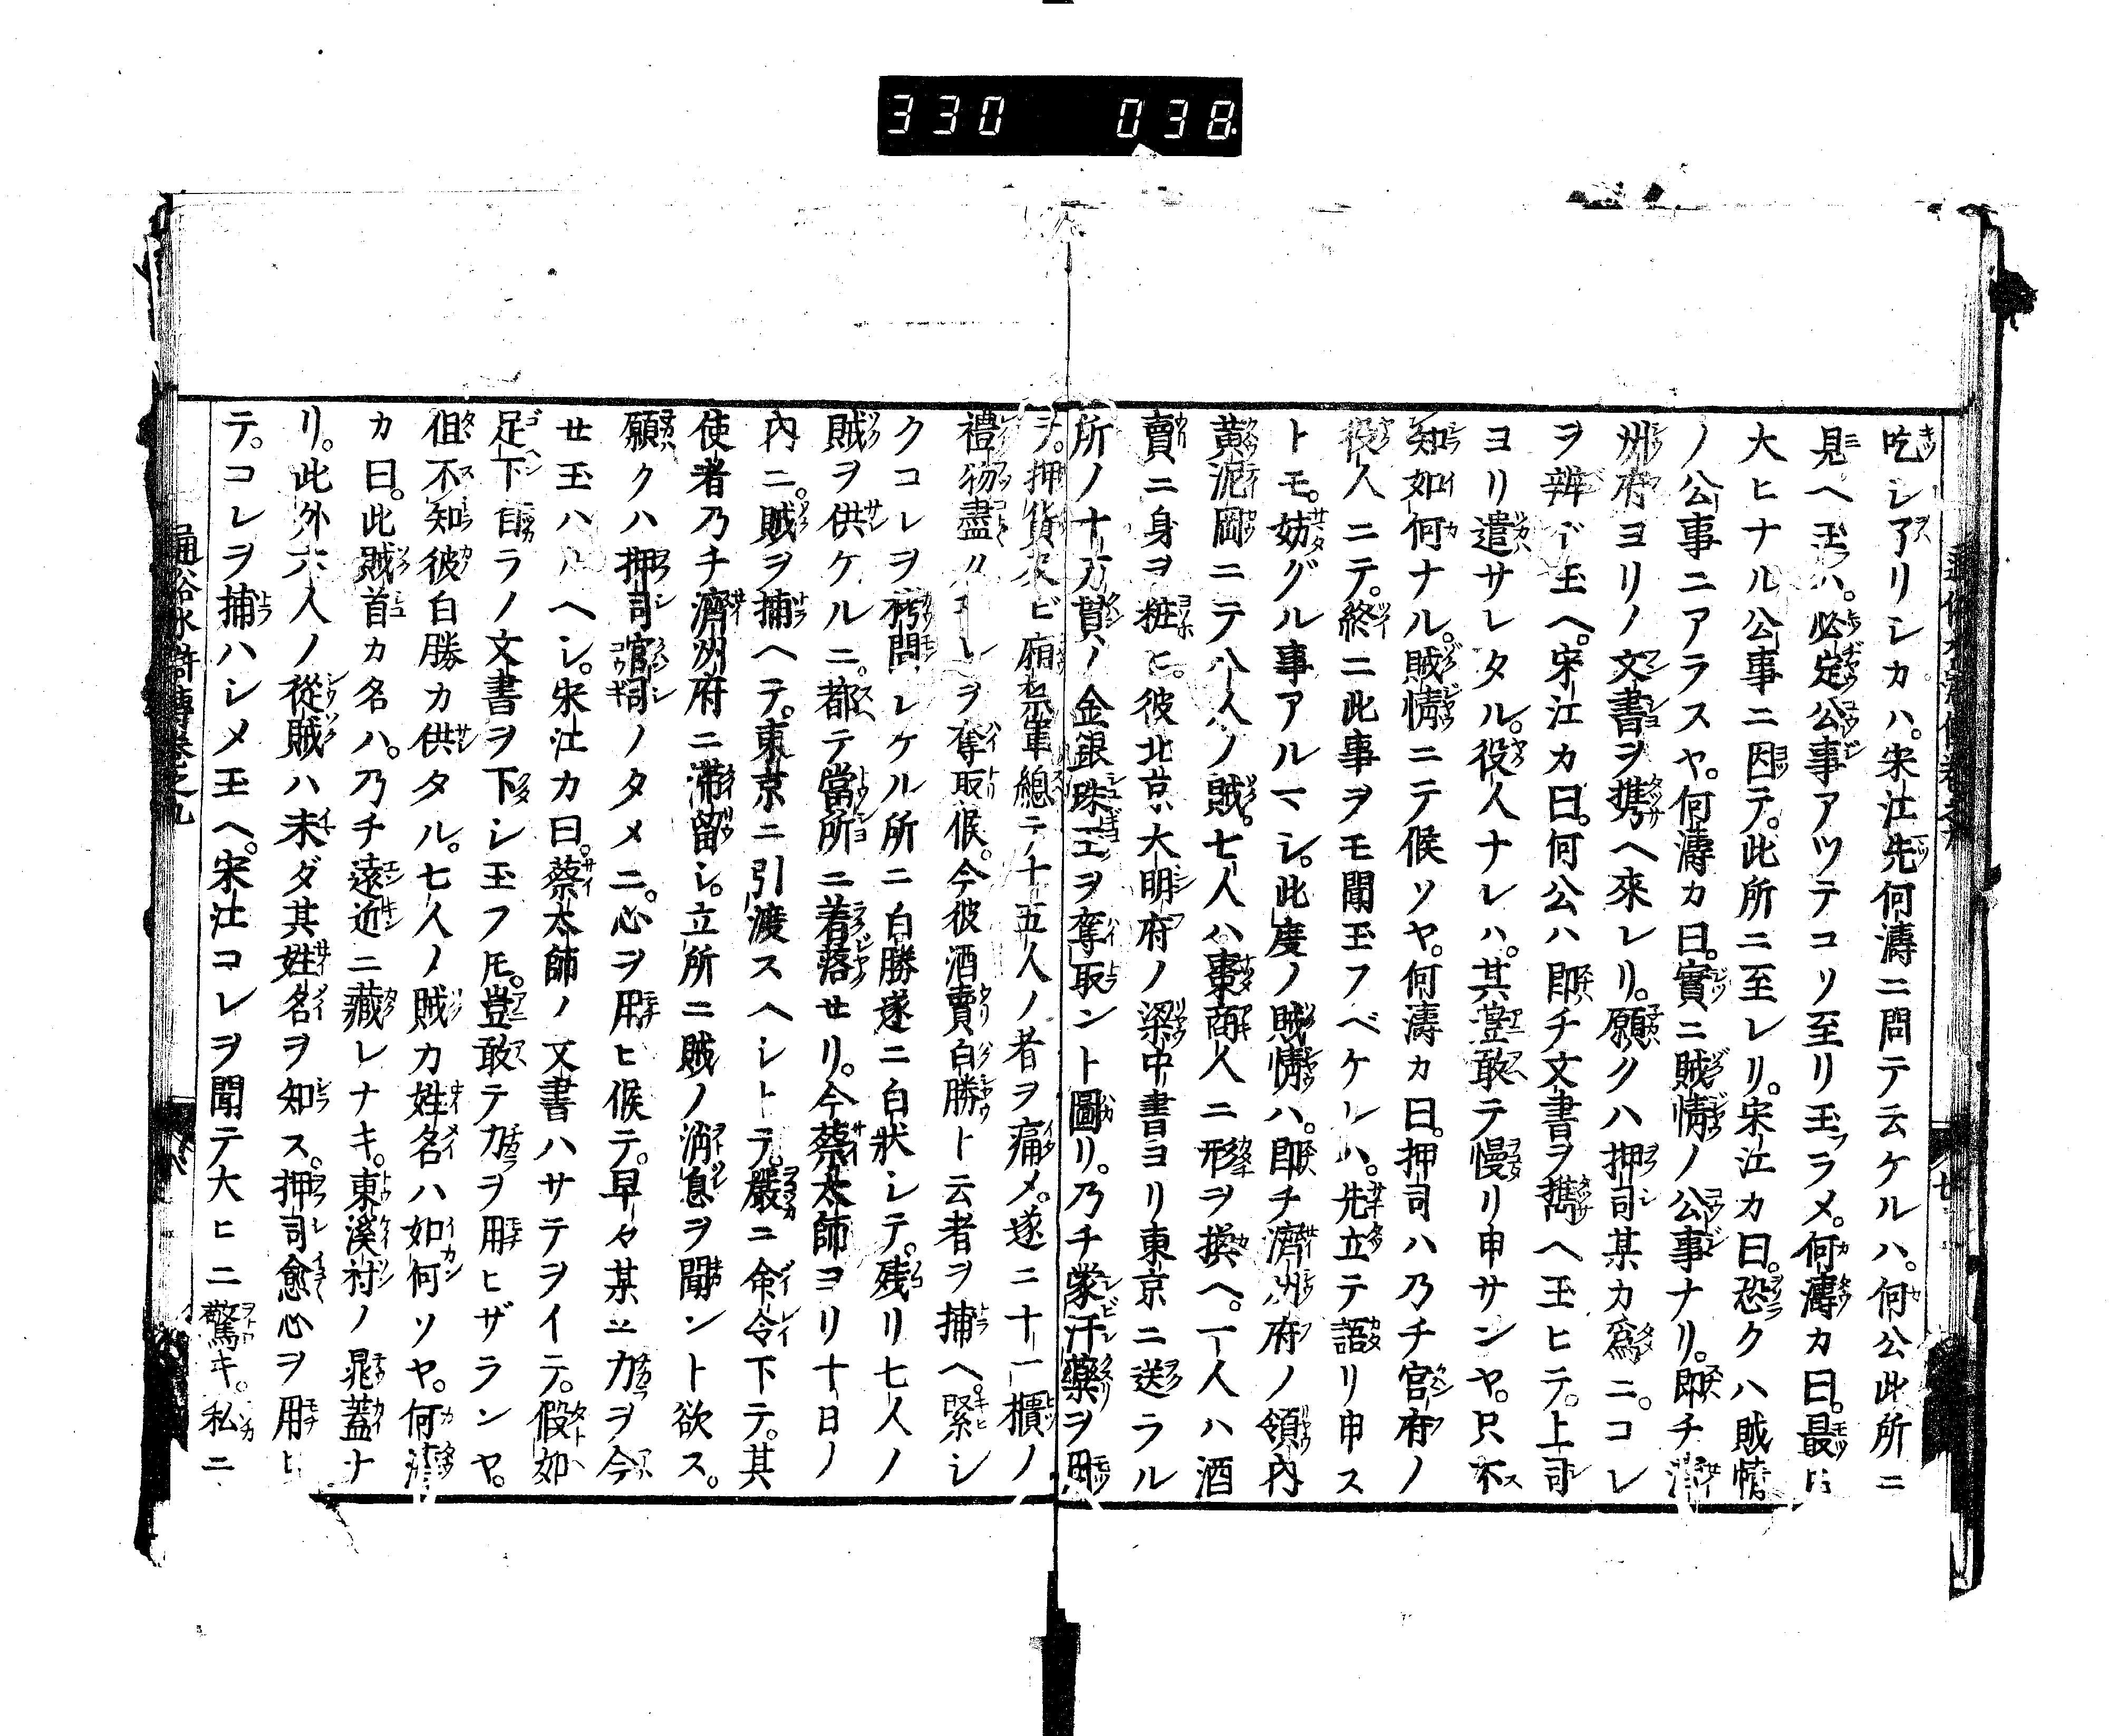 330 038
吃シ了リシカハ。宋江先何濤ニ問テ云ケルハ。何公此所ニ
見ヘ玉フハ。必定公事アツテコソ至リ玉フラメ。何濤カ曰。最
大ヒナル公事ニ因テ。此所ニ至レリ。宋江カ曰。恐クハ賊情
ノ公事ニアラスヤ。何濤カ曰。實ニ賊情ノ公事ナリ。即チ濟
洲府ヨリノ文書ヲ携ヘ來レリ。願クハ押司某カ爲ニ。コレ
ヲ辨ジ玉ヘ。宋江カ曰。何公ハ即チ文書ヲ携ヘ玉ヒテ。上司
ヨリ遣サレタル。役人ナレハ。其豈敢テ慢リ申サンヤ。只不
知如何ナル。賊情ニテ候ソヤ。何濤カ曰。押司ハ乃チ官府ノ
役人ニテ。終ニ此事ヲモ聞玉フベケレハ。先立テ語リ申ス
トモ。妨グル事アルマシ。此度ノ賊情ハ。即チ濟洲府ノ領內
黃泥岡ニテ八人ノ賊。七人ハ棗商人ニ形ヲ換ヘ。一人ハ酒
賣ニ身ヲ粧ヒ。彼北京大明府ノ梁中書ヨリ東京ニ送ラル
所ノ十万貫ノ金銀珠玉ヲ奪取ント圖リ。乃チ蒙汗藥ヲ用
ヲ。押貨及ビ廂禁軍總テ十五人ノ者ヲ痛メ。遂ニ十一櫃ノ
禮物盡クコレヲ奪取候。今彼酒賣白勝ト云者ヲ捕ヘ。緊シ
クコレヲ拷問シケル所ニ白勝遂ニ白狀シテ。残リ七人ノ
賊ヲ供ケルニ。都テ當所ニ着落せリ。今蔡太師ヨリ十日ノ
內ニ。賊ヲ捕ヘテ。東京ニ引渡スヘシトテ。嚴ニ命令下テ。其
使者乃チ濟洲府ニ滯留シ。立所ニ賊ノ消息ヲ聞ント欲ス。
願クハ押司官司ノタメニ。心ヲ用ヒ候テ。早々某ニ力ヲ今
せ玉ハルヘシ。宋江カ曰。蔡太師ノ文書ハサテヲイテ。假如
足下自ラノ文書ヲ下シ玉フ𪜈。豈敢テ力ヲ用ヒザランヤ。
但不知彼白勝カ供タル。七人ノ賊カ姓名ハ如何ソヤ。何濤
カ曰。此賊首カ名ハ。乃チ遠近ニ藏レナキ。東溪村ノ晁蓋ナ
リ。此外六人ノ從賊ハ未ダ其姓名ヲ知ス。押司愈心ヲ用ヒ
テ。コレヲ捕ハシメ玉ヘ。宋江コレヲ聞テ大ヒニ驚キ。私ニ
通俗水滸傳卷之九